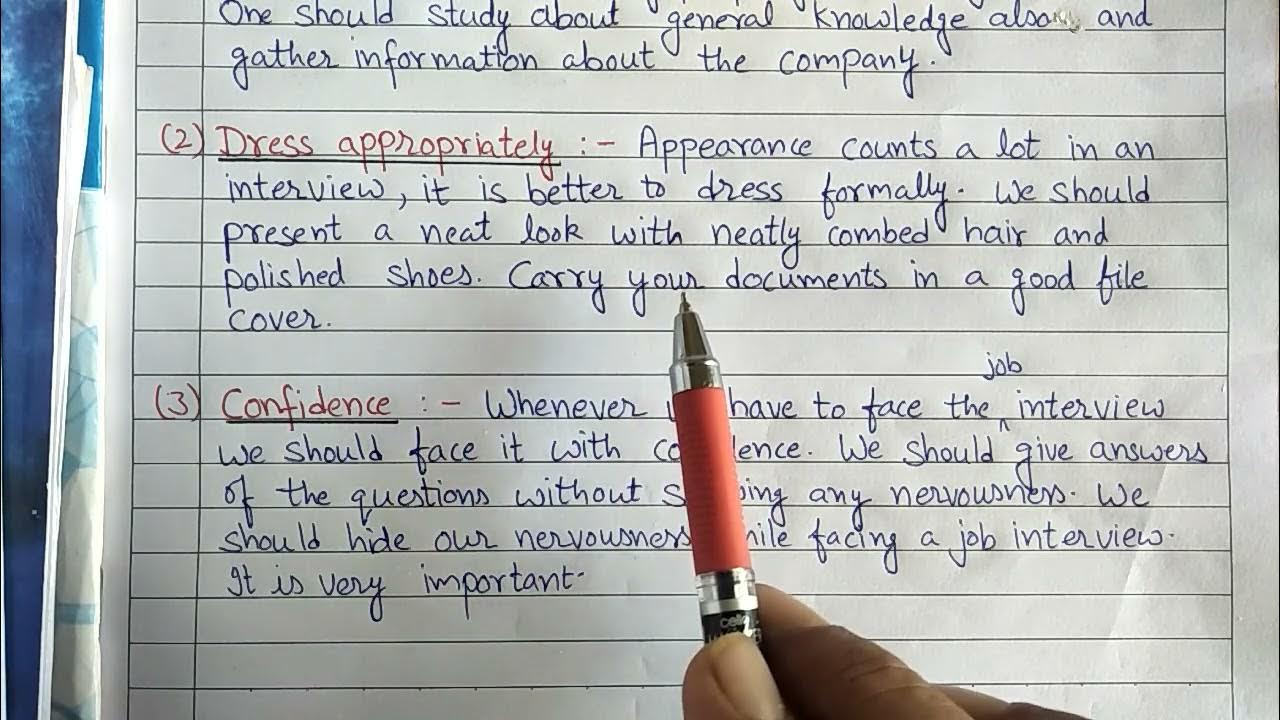 One should study about general knowledge also and
gather information about the company.
(2) Dress appropriately :- Appearance counts a lot in an
interview, it is better to dress formally. We should
present a neat look with neatly combed hair and
polished shoes. Carry your documents in a good file
cover.
job
(3) Confidence :- Whenever have to face the ^ interview
we should face it with
We should give answers
of the questions without
any nervousness. We
should hide our nervousness
facing a job interview.
It is very important.
cello